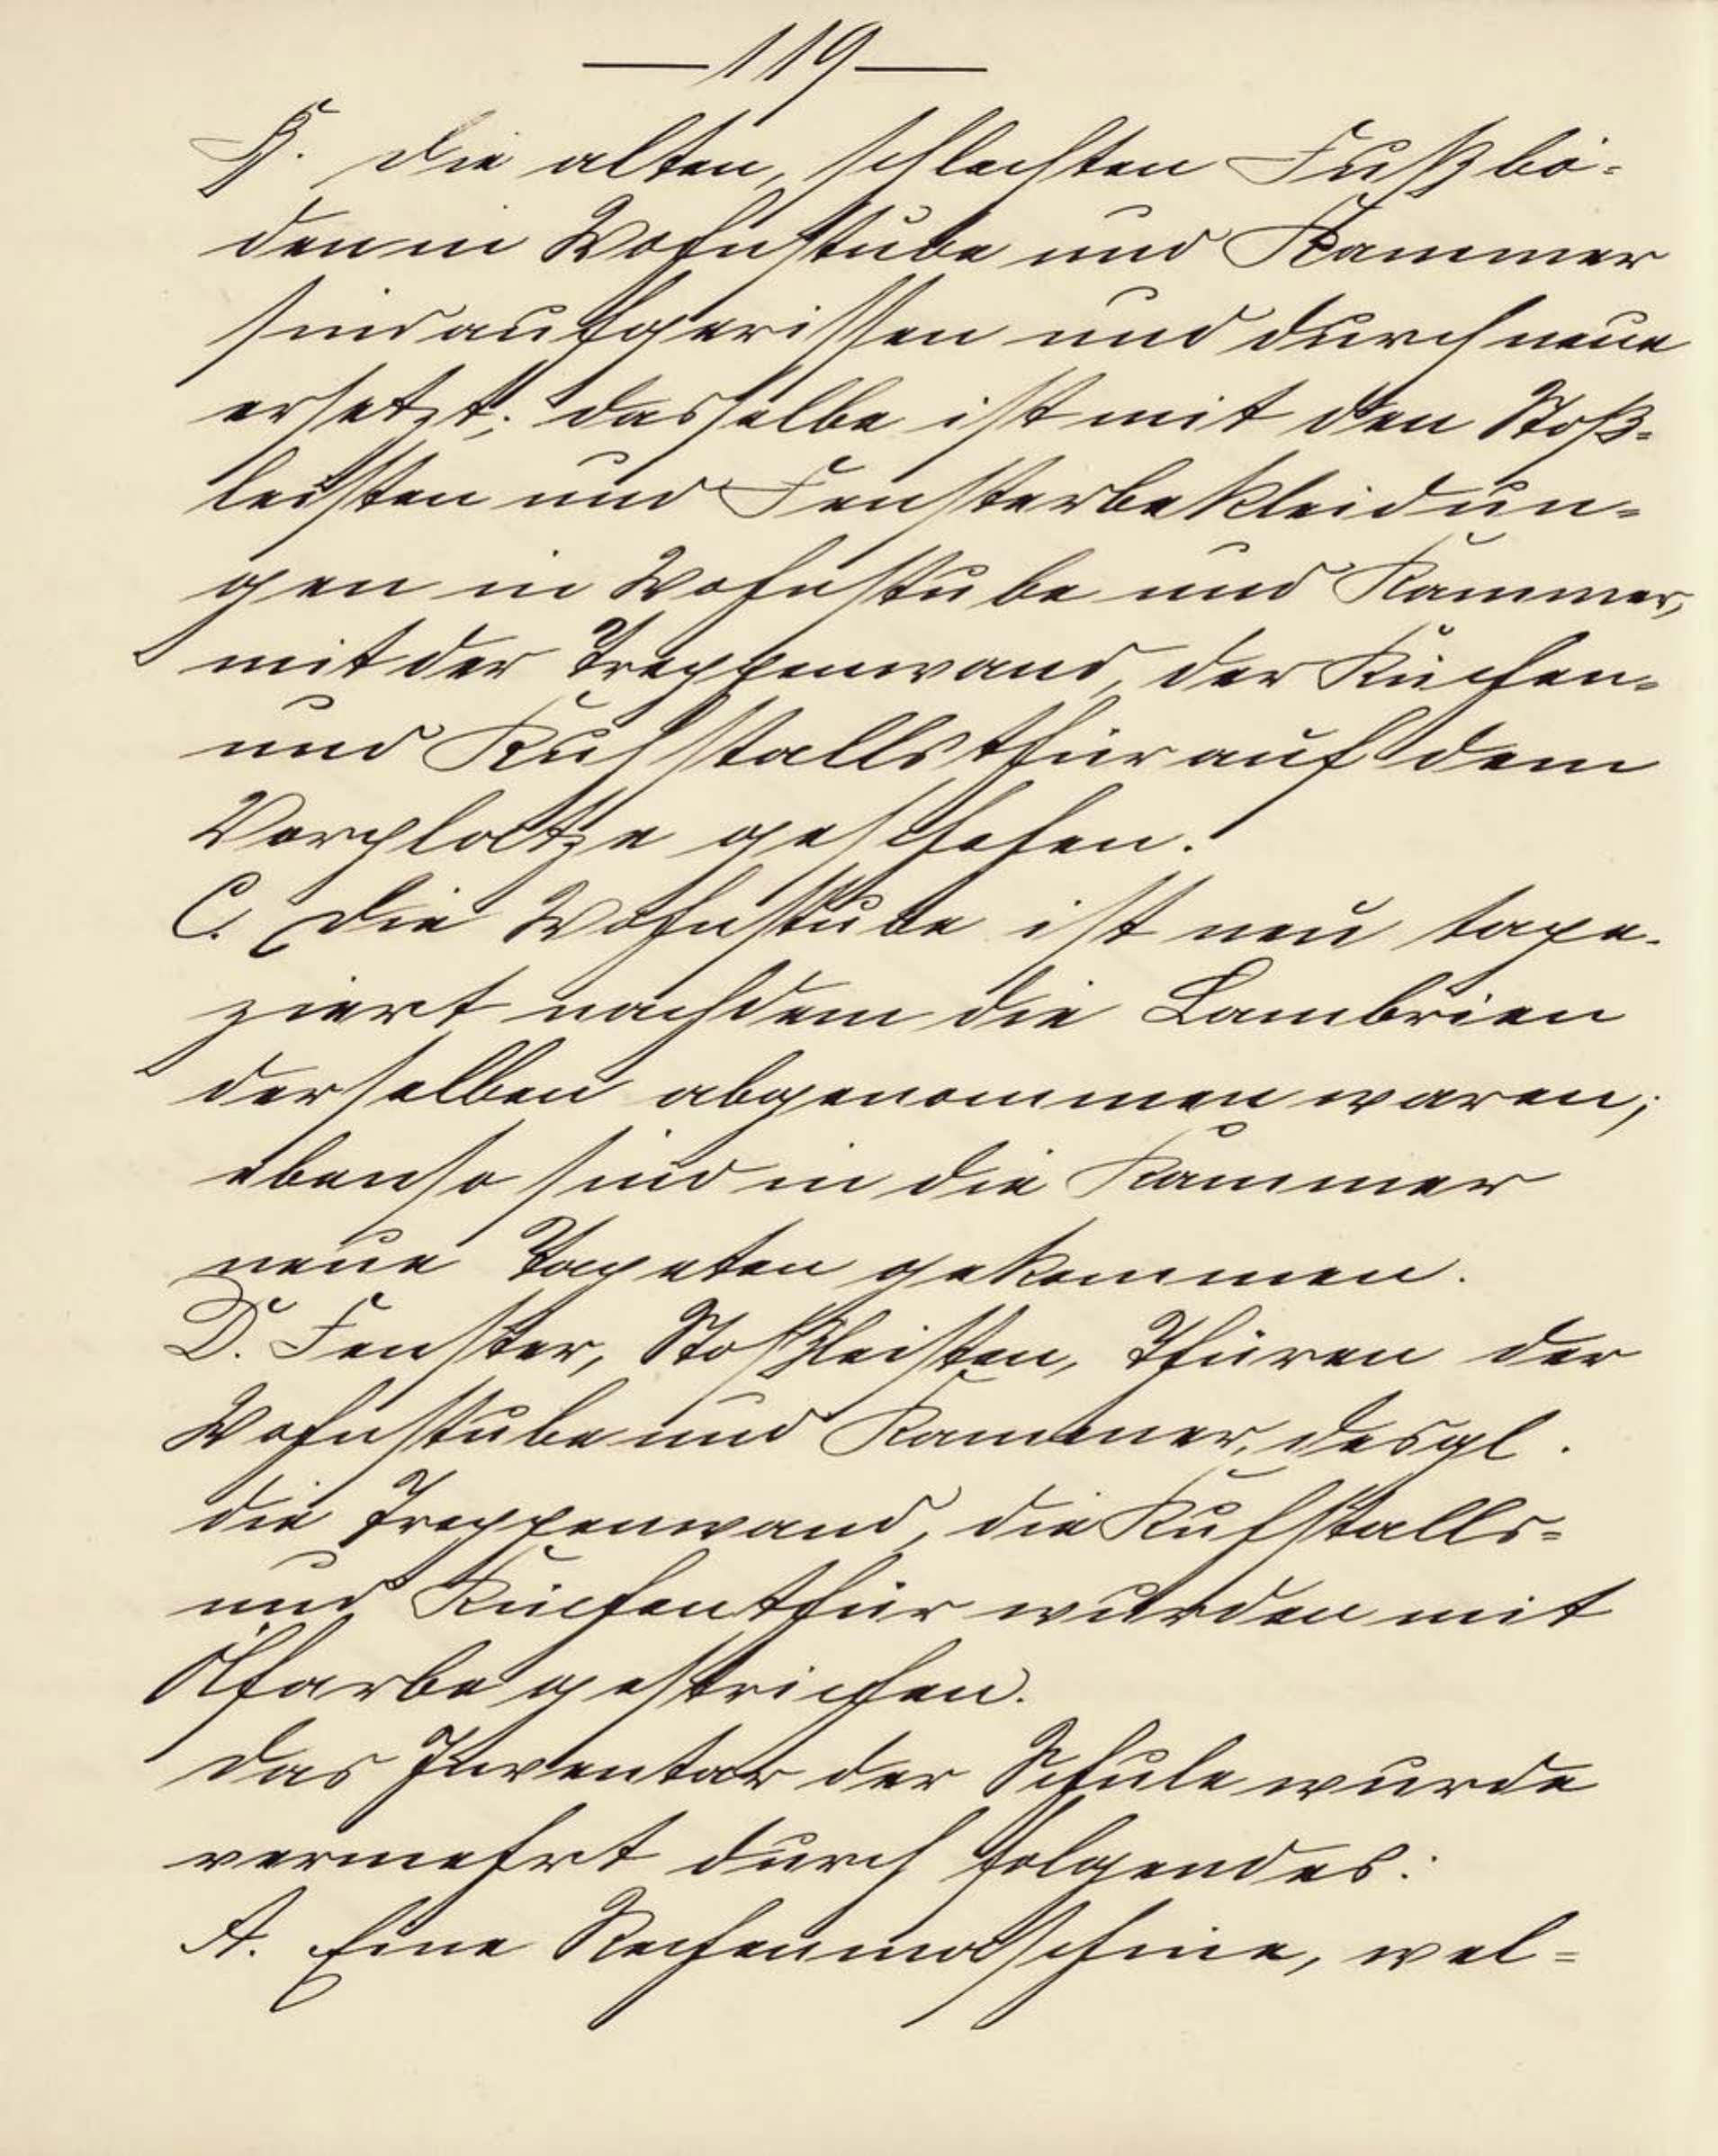 — 119 —
B. Die alten, schlechten Fußbö-
den in Wohnstube und Kammer
sind aufgerissen und durch neue
ersetzt; dasselbe ist mit den Stoß-
leisten und Fensterbekleidun-
gen in Wohnstube und Kammer,
mit der Treppenwand, der Küchen-
und Kuhstallsthür auf dem
Vorplatze geschehen.
C. Die Wohnstube ist neu tape-
ziert nachdem die Lambrien
derselben abgenommen waren;
ebenso sind in die Kammer
neue Tapeten gekommen.
D. Fenster, Stoßleisten, Thüren der
Wohnstube und Kammer, desgl.
die Treppenwand, die Kuhstalls-
und Küchenthür wurden mit
Ölfarbe gestrichen.
Das Inventar der Schule wurde
vermehrt durch folgendes:
A. Eine Rechenmaschine, wel-